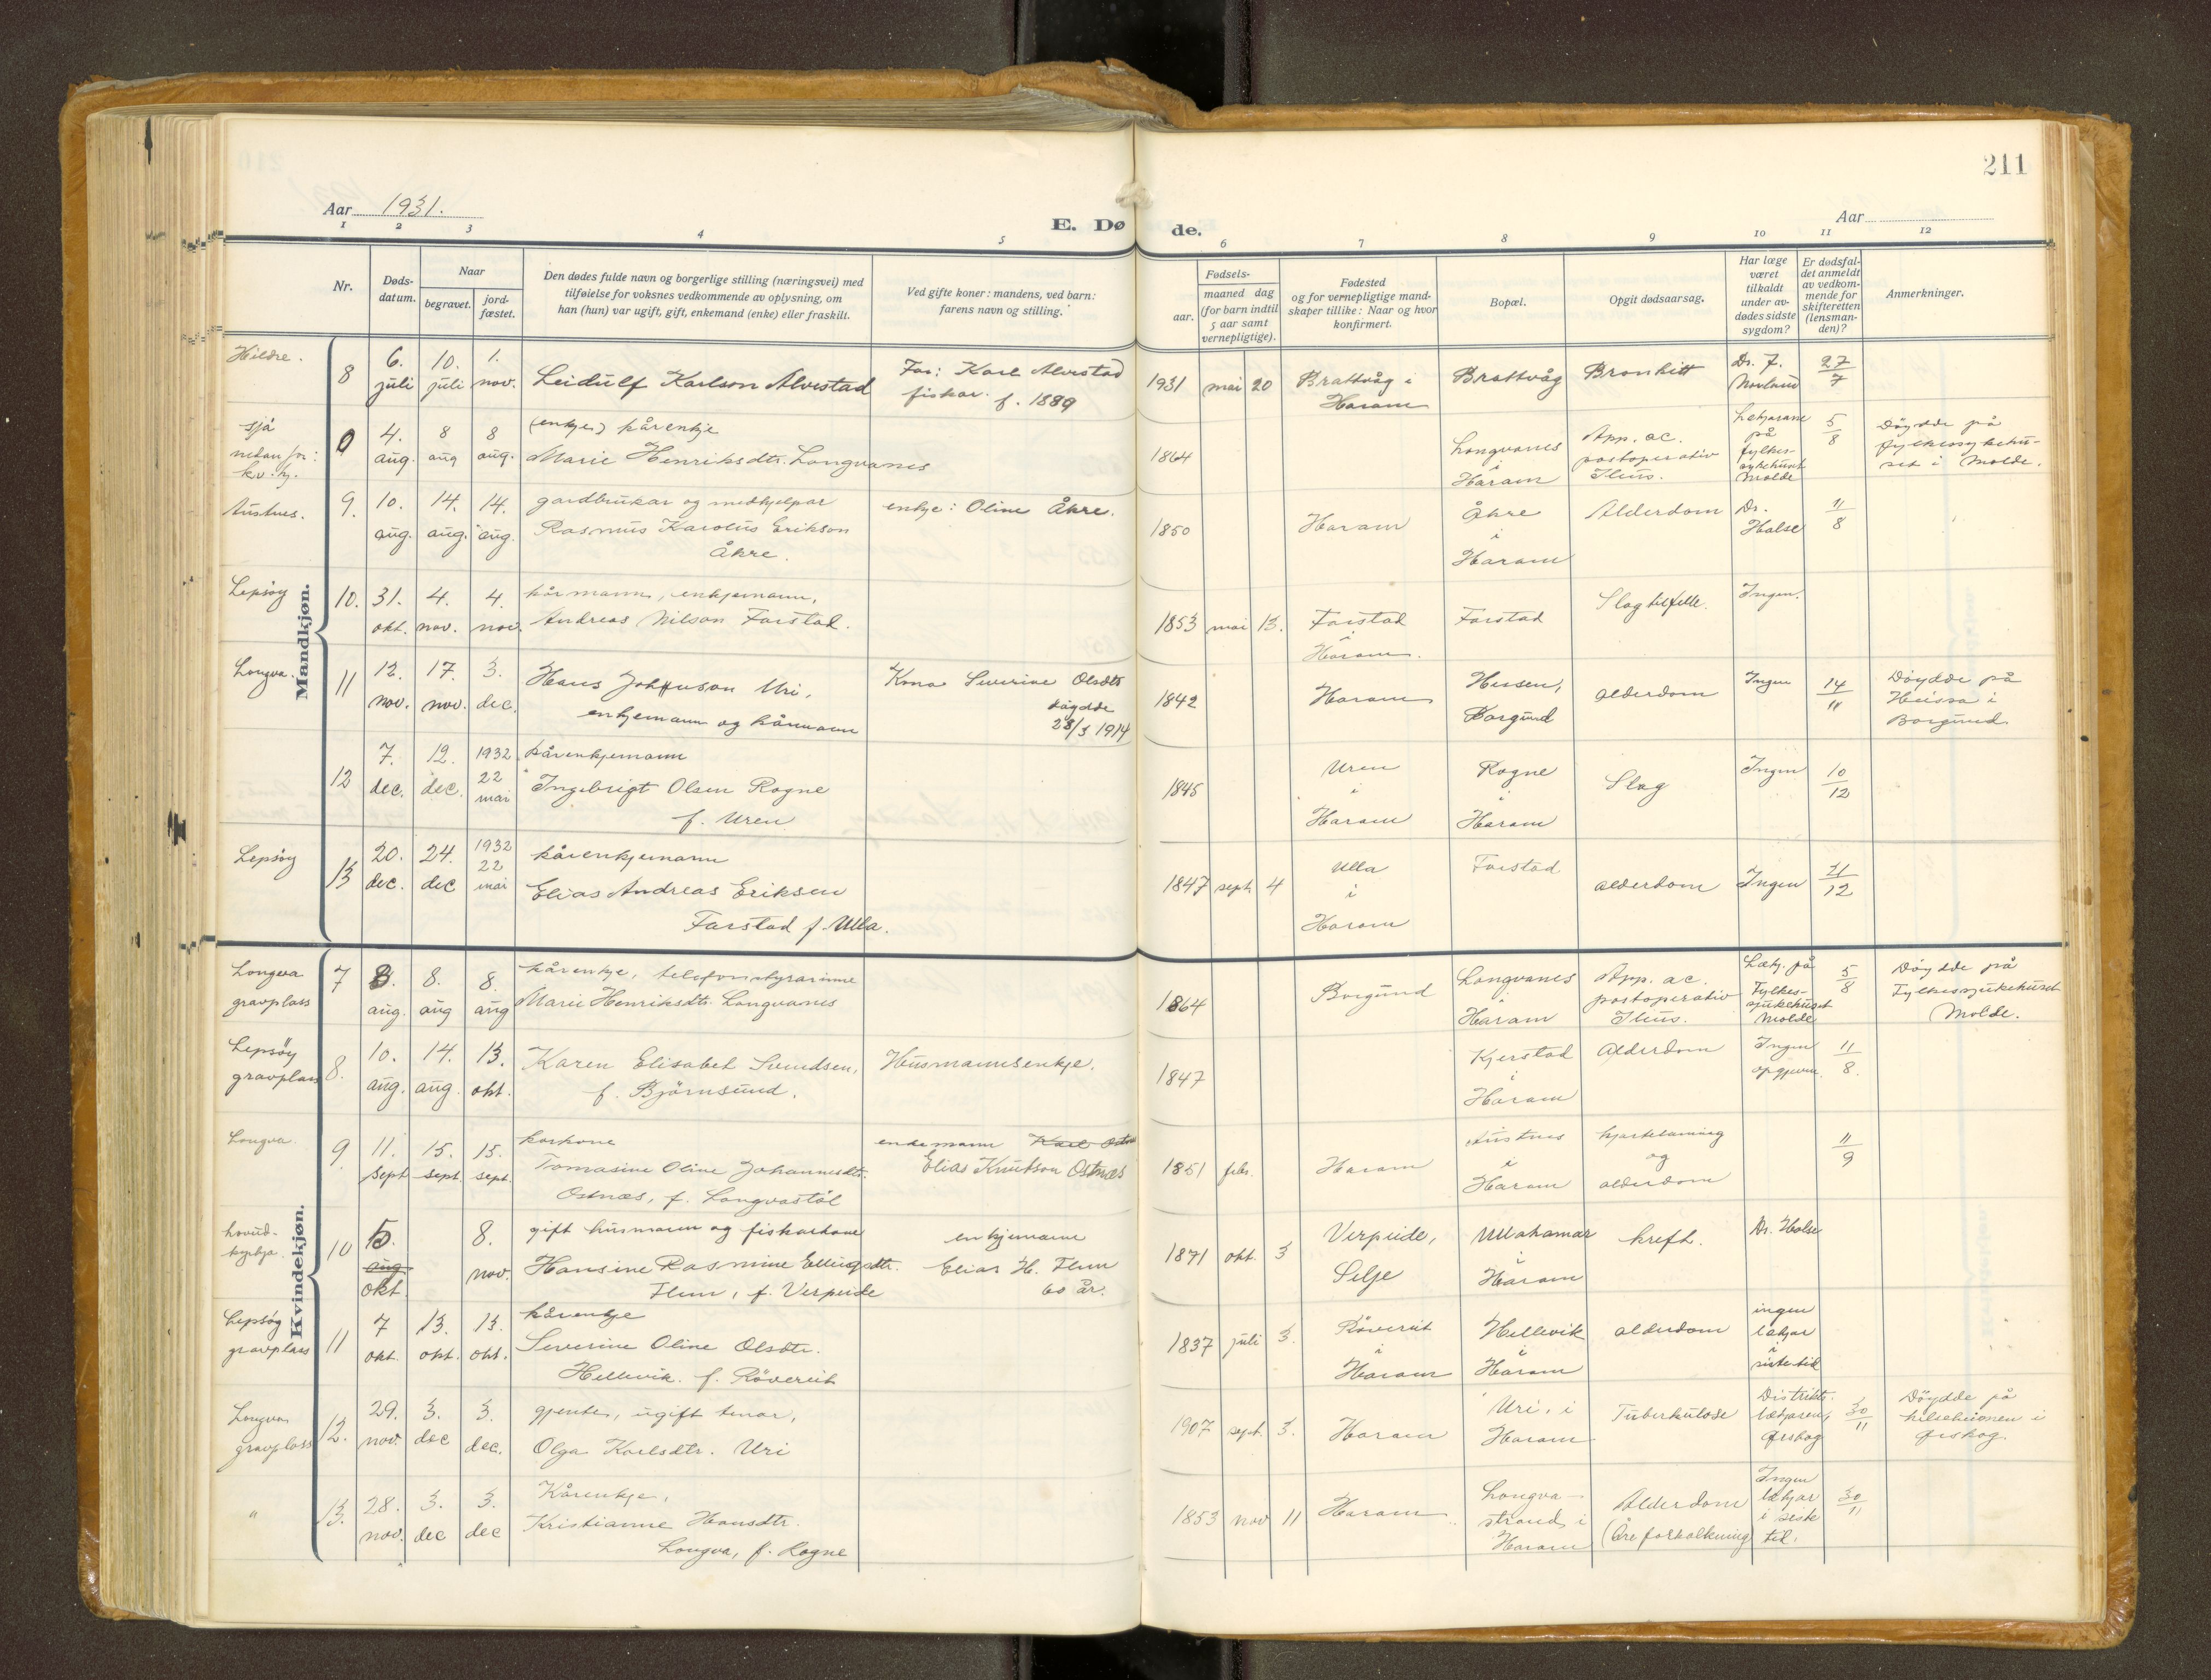 211
Aar 1931.
E. Dø de.
Aar
1 2 3 4 5 6 7 8 9 10 11 12
Nr.
Døds-
datum.
Naar
begravet.
jord-
fæstet.
Den dødes fulde navn og borgerlige stilling (næringsvei) med
tilføielse for voksnes vedkommende av oplysning, om
han (hun) var ugift, gift, enkemand (enke) eller fraskilt.
Ved gifte koner: mandens, ved barn:
farens navn og stilling.
Fødsels-
aar.
maaned dag
(for barn indtil
5 aar samt
vernepligtige).
Fødested
og for vernepligtige mand-
skaper tillike: Naar og hvor
konfirmert.
Bopæl.
Opgit dødsaarsag.
Har læge
været
tilkaldt
under av-
dødes sidste
sygdom?
Er dødsfal-
det anmeldt
av vedkom-
mende for
skifteretten
(lensman-
den)?
Anmerkninger.
Mandkjøn.
Hildre.
8
6. juli
10. juli
1. nov.
Leidulf Karlson Alvestad
Far: Karl Alvestad
fiskar. f. 1889
1931 mai 20
Brattvåg i
Haram
Brattvåg
Bronkitt
Dr. J.
Norland
27/7
sjå
nedan for:
kv. kj.
0
4. aug.
8 aug
8 aug.
(enkje) kårenkje
Marie Henriksdtr. Longvanes
1864
Longvanes
i
Haram
App. ac.
postoperativ
Ileus.
Lækjarane
på
fylkes-
sykehuset
Molde
5/8
Døydde på
fylkessykehu-
set i Molde.
Austnes.
9.
10. aug.
14. aug.
14. aug.
gardbrukar og medhjelpar
Rasmus Karolus Erikson
Åkre.
enkje: Oline Åkre.
1850
Haram
Åkre
i
Haram
Alderdom
Dr.
Halse
11/8
Lepsøy
10.
31. okt.
4. nov.
4. nov.
kårmann, enkjemann,
Andreas Nilson Farstad.
1853 mai 13.
Farstad
i
Haram.
Farstad
Slagtilfelle.
Ingen.
Longva.
11
12. nov.
17. nov.
3. dec.
Hans Johnson Uri,
enkjemann og kårmann
Kona Severine Olsdtr
døydde
28/3 1914
1842
Haram
Hessen,
Borgund
alderdom
Ingen
14/11
Døydde på
Heissa i
Borgund
12
7. dec.
12. dec.
1932
22
mai
kårenkjemann
Ingebrigt Olsen Rogne
f. Uren
1845
Uren
i
Haram
Rogne
i
Haram
Slag
Ingen
10/12
Lepsøy
13
20. dec.
24. dec
1932
22
mai
kårenkjemann
Elias Andreas Eriksen
Farstad f. Ulla.
1847 sept. 4
Ulla
i
Haram
Farstad
alderdom
Ingen
21/12
Kvindekjøn.
Longva
gravplass
7
aug.
8. aug
8. aug
kårenkje, telefonstyrarinne
Marie Henriksdtr. Longvanes
1864
Borgund
Longvanes
i
Haram
App. ac.
postoperativ
Ileus.
Lækj. på
Fylkes-
sjukehuset
Molde
5/8
Døydde på
Fylkessjukehuset
Molde.
Lepsøy
gravplass
8.
10. aug.
14. aug
13. okt.
Karen Elisabet Svendsen,
f. Bjørnsund.
Husmannsenkje.
1847
Kjerstad
i
Haram
Alderdom
Ingen
opgjeven.
11/8.
Longva.
9
11. sept
15. sept.
15. sept.
karkone
Tomasine Oline Johannesdtr.
Ostnæs, f. Longvastøl
enkemann Karl Ostn
Elias Knutson Ostnæs
1851 febr.
Haram
Austnes
i
Haram
hjartelaming
og
alderdom
11/9
hovud-
kyrkja.
10
5.
aug
okt
8. nov.
gift husmann og fiskarkone
Hansine Rasmine Ellingsdtr.
Flem, f. Verpeide
enkjemann
Elias H. Flem
60 år.
1871 okt. 3
Verpeide,
Selje
Ullahamar
i
Haram
kreft.
Dr. Halse
Lepsøy
gravplass
11
7 okt.
13. okt.
13. okt.
kårenkje
Severine Oline Olsdtr.
Hellevik. f. Røvereit
1837 juli 3.
Røvereit
i
Haram
Hellevik
i
Haram
alderdom
ingen
lækjar
i
siste tid
Longva
gravplass
12.
29. nov.
3. dec
3. dec.
gjente, ugift tenar,
Olga Karlsdtr. Uri
1907 sept. 3.
Haram
Uri, i
Haram
Tuberkulose
Distrikts-
lækjaren,
Ørskog
30/11
Døydde på
helseheimen i
Ørskog.
"
13.
28. nov.
3. dec
3. dec
Kårenkje,
Kristianne Hansdtr.
Longva, f. Rogne
1853 nov 11
Haram
Longva-
strand, i
Haram
Alderdom
(Åreforkalkning)
Ingen
lækjar
i siste
tid.
30/11